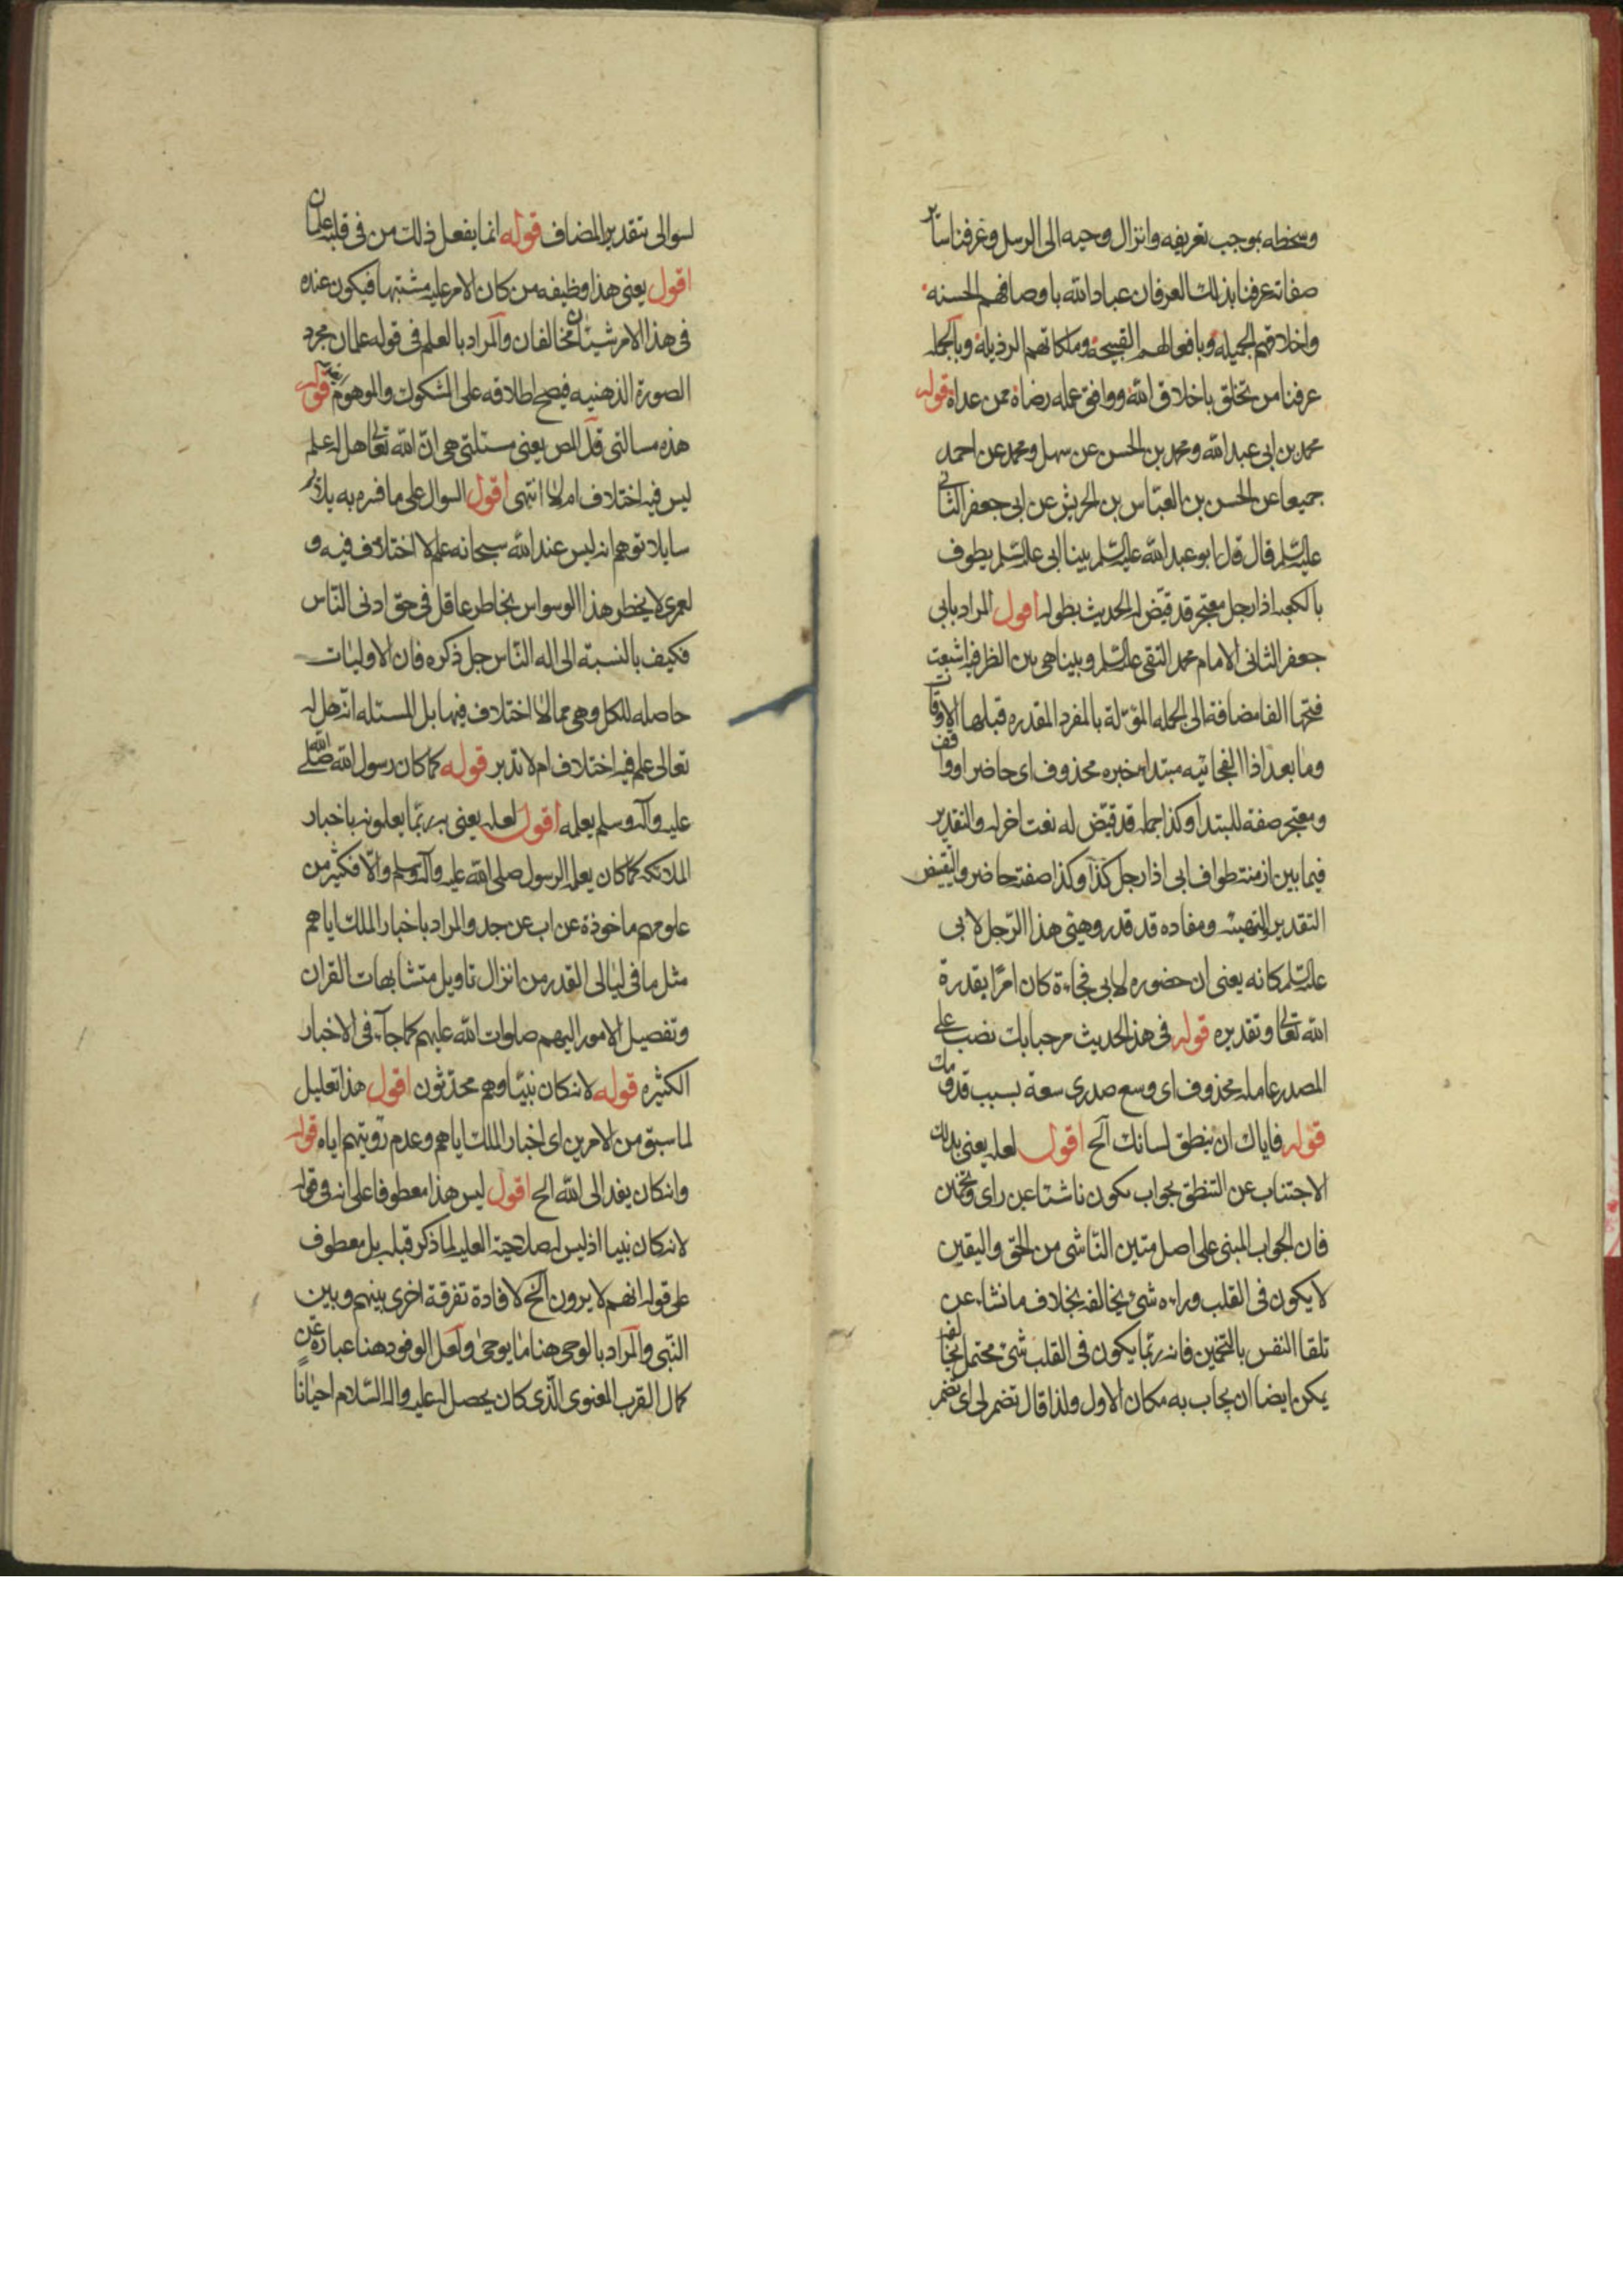 وسخطه بموجب تعريفه وانزال وحيه الى الرسل وعرفنا سائر
صفاته عرفنا بذلك العرفان عباد الله باوصافهم الحسنه
واخلاقهم الجميله وبافعالهم القبيحة وملكاتهم الرذيلة وبالجمله
عرفنا من تخلق باخلاق الله ووافق عمله رضاه ممن عداه قوله
محمد بن ابى عبد الله ومحمد بن الحسن عن سهل ومحمد عن احمد
جميعا عن الحسن بن العباس بن الحريش عن ابى جعفر الثانى
عليه السلم قال قال ابو عبد الله عليه السلم بينا ابى عليه السلم يطوف
بالكعبه اذا رجل معتجر قد قيّض له الحديث بطوله اقول المراد بابى
جعفر الثانى الامام محمد التقى عليه السلم وبينا هى بين الظرفيه اشبعت
فتحها الفا مضافة الى الجمله المؤوّلة بالمفرد المقدره قبلها الاوقات
وما بعد اذا الفجائيه مبتدا خبره محذوف اى حاضر او واقف
ومعتجر صفة للمبتدا وكذا جملة قد قيّض له نعت اخر له والتقدير
فيما بين ازمنة طواف ابى اذا رجل كذا وكذا صفته حاضر والتقييض
التقدير والتهيئه ومفاده قد قدر وهيئ هذا الرّجل لابى
عليه السلم كانه يعنى ان حضوره لابى فجاءة كان امرا بقدرة
الله تعالى وتقديره قوله فى هذ الحديث مرحبا بك نصب على
المصدر عامله محذوف اى وسع صدرى سعة بسبب قدومك
قوله فاياك ان ينطق لسانك الخ اقول لعله يعنى بذلك
الاجتناب عن التنطق بجواب يكون ناشئا عن راى وتخمين
فان الجواب المبنى على اصل متين النّاشى من الحق واليقين
لا يكون فى القلب وراءه شئ يخالفه بخلاف ما نشاء عن
تلقا النفس بالتخمين فانه ربّما يكون فى القلب شئ محتمل يخالفه
يمكن ايضا ان يجاب به مكان الاول ولذا قال تضمر لى اى تضمر
لسوالى بتقدير المضاف قوله انما يفعل ذلك من فى قلبه علمان
اقول يعنى هذا وظيفه من كان الامر عليه مشتبها فيكون عنده
فى هذا الامر شيئان مخالفان والمراد بالعلم فى قوله علمان مجرد
الصورة الذهنيه فيصح اطلاقه على المشكوك والموهوم قوله
هذه مسالتى قال المص يعنى مسئلتى هى انّ الله تعالى هل له علم
ليس فيه اختلاف ام لا انتهى اقول السوال على ما فسره به يلائم
سايلا توهم انه ليس عند الله سبحانه علم لا اختلاف فيه و
لعمرى لا يخطر هذا الوسواس بخاطر عاقل فى حق ادنى النّاس
فكيف بالنسبة الى اله النّاس جل ذكره فان الاوليات
حاصله للكل وهى مما لا اختلاف فيها بل المسئله انّه هل له
تعالى علم فيه اختلاف ام لا تدبر قوله كما كان رسول الله صلى الله
عليه وآله وسلم يعلمه اقول لعله يعنى به ربّما يعلمونه باخبار
الملائكه كما كان يعلمه الرسول صلى الله عليه وآله وسلم والّا فكثير من
علومهم ماخوذة عن اب عن جد والمراد باخبار الملك اياهم
مثل ما فى ليالى القدر من انزال تاويل متشابهات القران
وتفصيل الامور اليهم صلوات الله عليهم كما جآء فى الاخبار
الكثيره قوله لانه كان نبيّا وهم محدّثون اقول هذا تعليل
لما سبق من الامرين اى اخبار الملك اياهم وعدم رؤيتهم اياه قوله
وانه كان يفد الى الله الخ اقول ليس هذا معطوفا على انه فى قوله
لانه كان نبيا اذ ليس له صلاحية العليه لما ذكر قبله بل معطوف
على قوله انهم لا يرون الخ لافادة تفرقة اخرى بينهم وبين
النّبى والمراد بالوحى هنا ما يوحى ولعل الوفود هنا عبارة عن
كمال القرب المعنوى الّذى كان يحصل له عليه واله السّلام احيانا